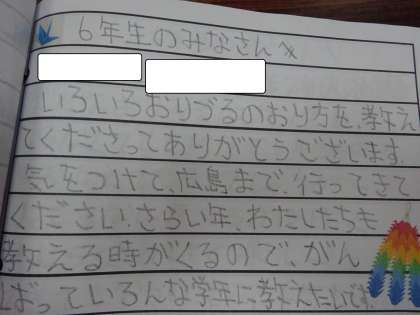 6年生のみなさんへ
いろいろおりづるのおり方を、教え
てくださってありがとうございます。
気をつけて、広島まで、行ってきて
ください。さらい年、わたしたちも
教える時がくるので、がん
ばっていろんな学年に教えたいです。